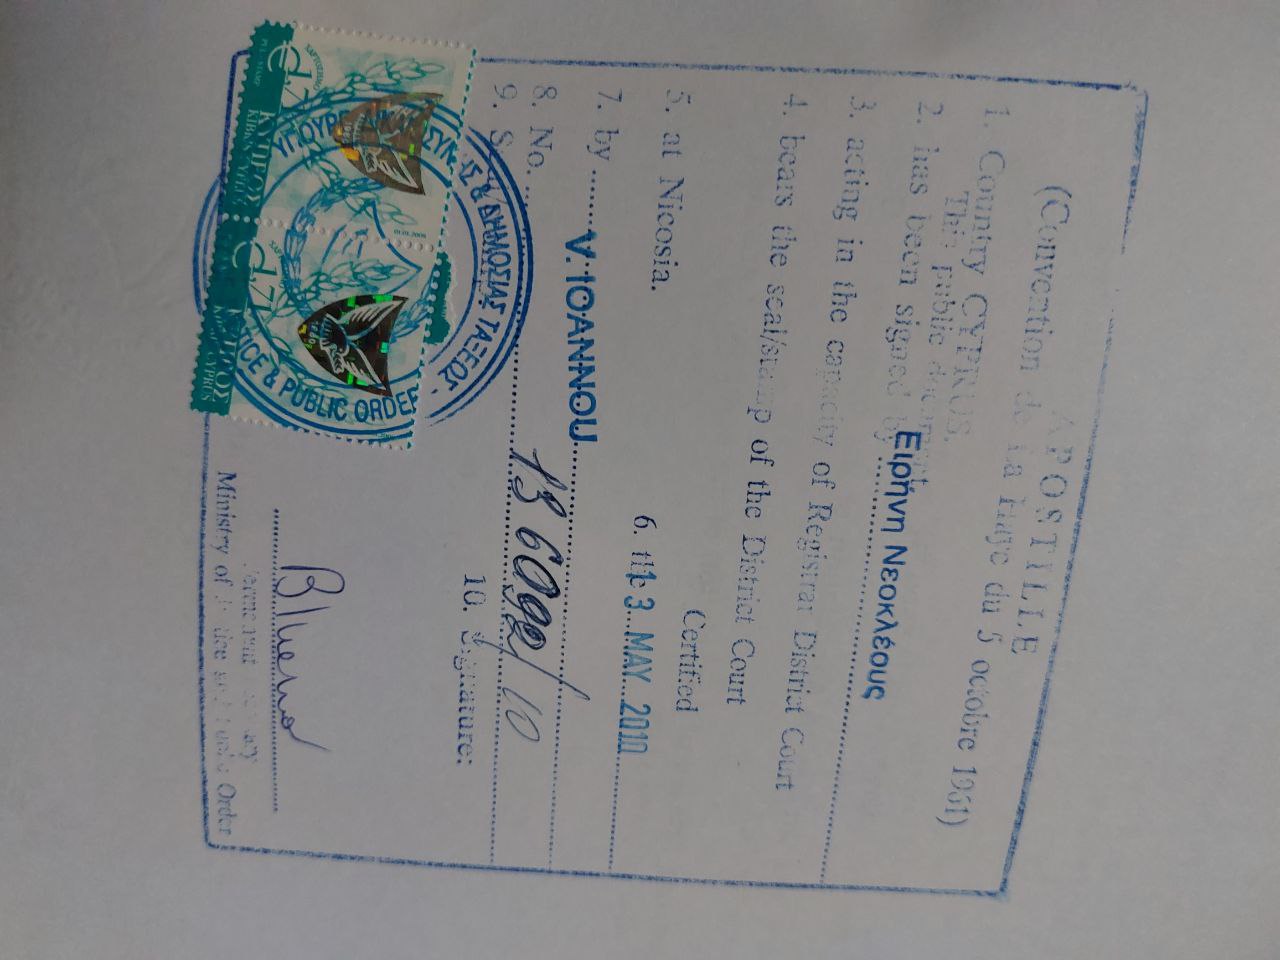 APOSTILLE
(Convention de La Haye du 5 octobre 1961)
1. Country CYPRUS.
This public document
2. has been signed by Ειρήνη Νεοκλέους
3. acting in the capacity of Registrar District Court
4. bears the seal/stamp of the District Court
Certified
5. at Nicosia.
6. the 13 MAY 2010
7. by V. ΙΟΑΝΝΟU
8. No.
9. S
10. Signature:
Permanent Secretary
Ministry of Justice and Public Order
& ΔΗΜΟΣΙΑΣ ΤΑΞΕΩΣ
ICE & PUBLIC ORDER
ΚΙΠΡΟΥ
KIBRIS
CYPRUS